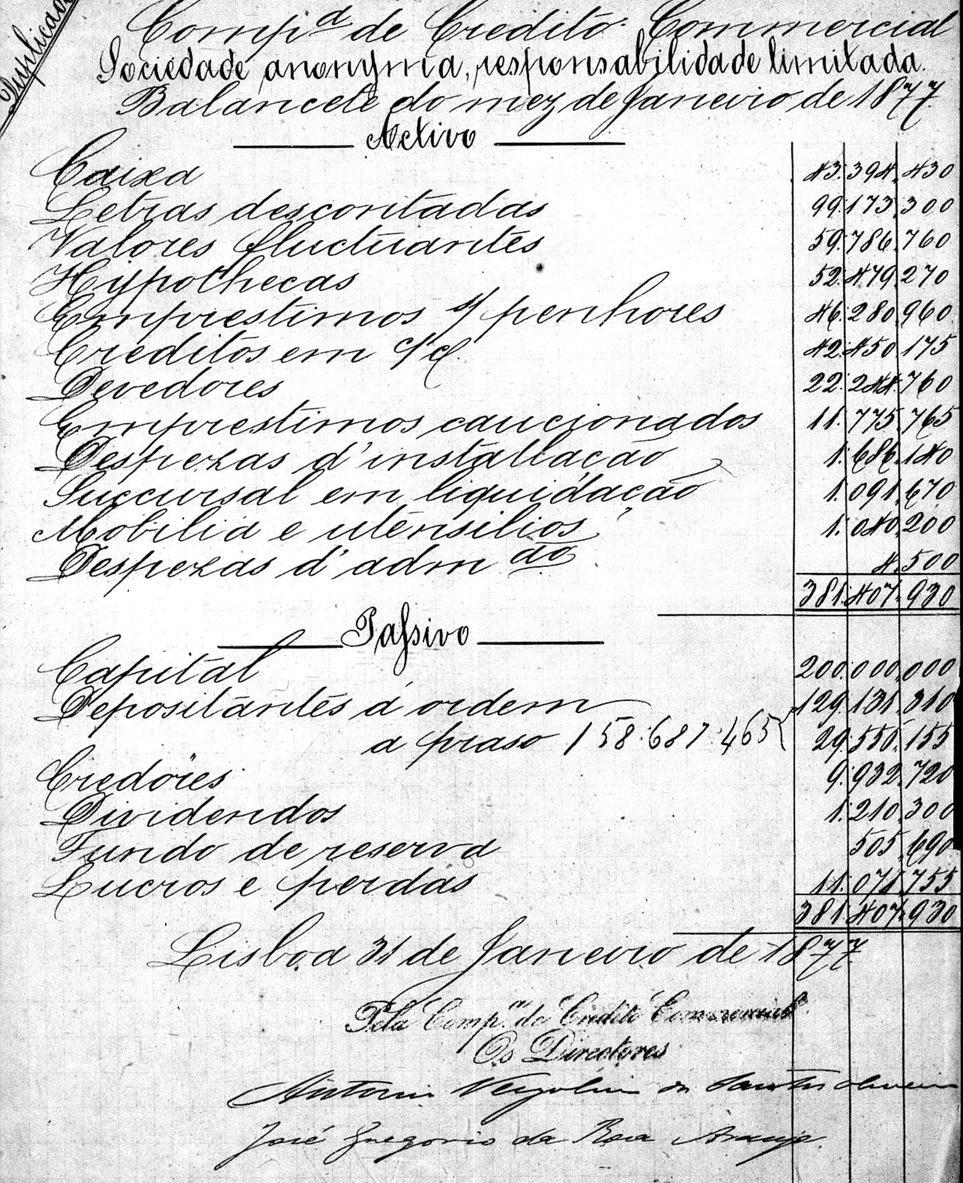 Duplicado
Comp.ª de Credito Commercial
Sociedade anonyma, responsabilidade limitada.
Balancete do mez de Janeiro de 1877
Activo
Caixa 43.394.430
Letras descontadas 99.173.300
Valores fluctuantes 59.786.760
Hypothecas 52.479.270
Emprestimos s/ penhores 46.280.960
Creditos em c/c. 42.450.175
Devedores 22.244.760
Emprestimos caucionados 11.775.765
Despezas d'installação 1.686.140
Succursal em liquidação 1.091.670
Mobilia e utensilios 1.040.200
Despezas d'adm.ão 4.500
381.407.930
Passivo
Capital 200.000.000
Depositantes á ordem 129.131.310
a praso 158.687.465 29.556.155
Credores 9.932.720
Dividendos 1.210.300
Fundo de reserva 505.690
Lucros e perdas 11.071.755
381.407.930
Lisboa 31 de Janeiro de 1877
Pela Comp.ª de Credito Commercial
Os Directores
Antonio dos Santos Oliveira
José Gregorio da Rosa Araujo.